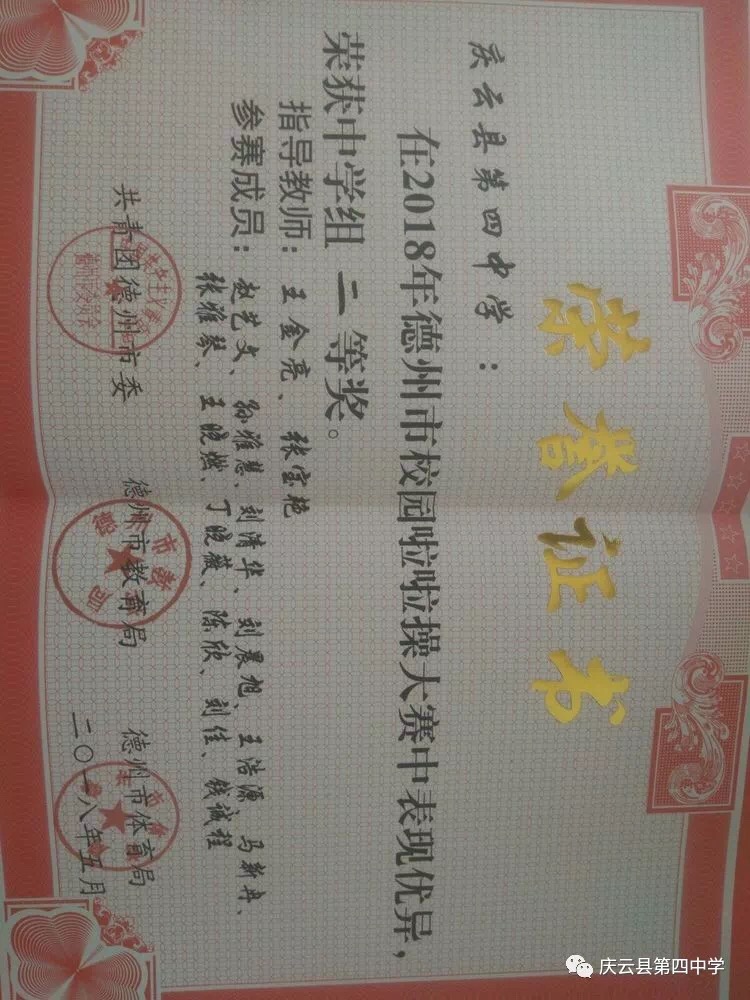 荣誉证书
庆云县第四中学：
在2018年德州市校园啦啦操大赛中表现优异，
荣获中学组 二 等奖。
指导教师：王金亮、张宝艳
参赛成员：赵艺文、孙雅慧、刘清华、刘晨旭、王浩源、马新冉、
张雅琴、王晓燃、丁晓薇、陈欣、刘佳、钱诚程
共青团德州市委 德州市教育局 德州市体育局
二〇一八年五月
庆云县第四中学